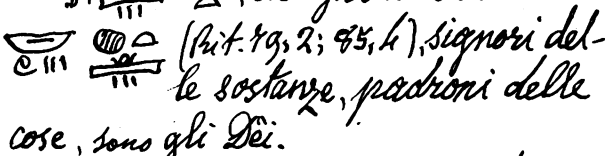 (Rit. 79, 2; 85, 4), signori del-
le sostanze, padroni delle
cose, sono gli Dêi.